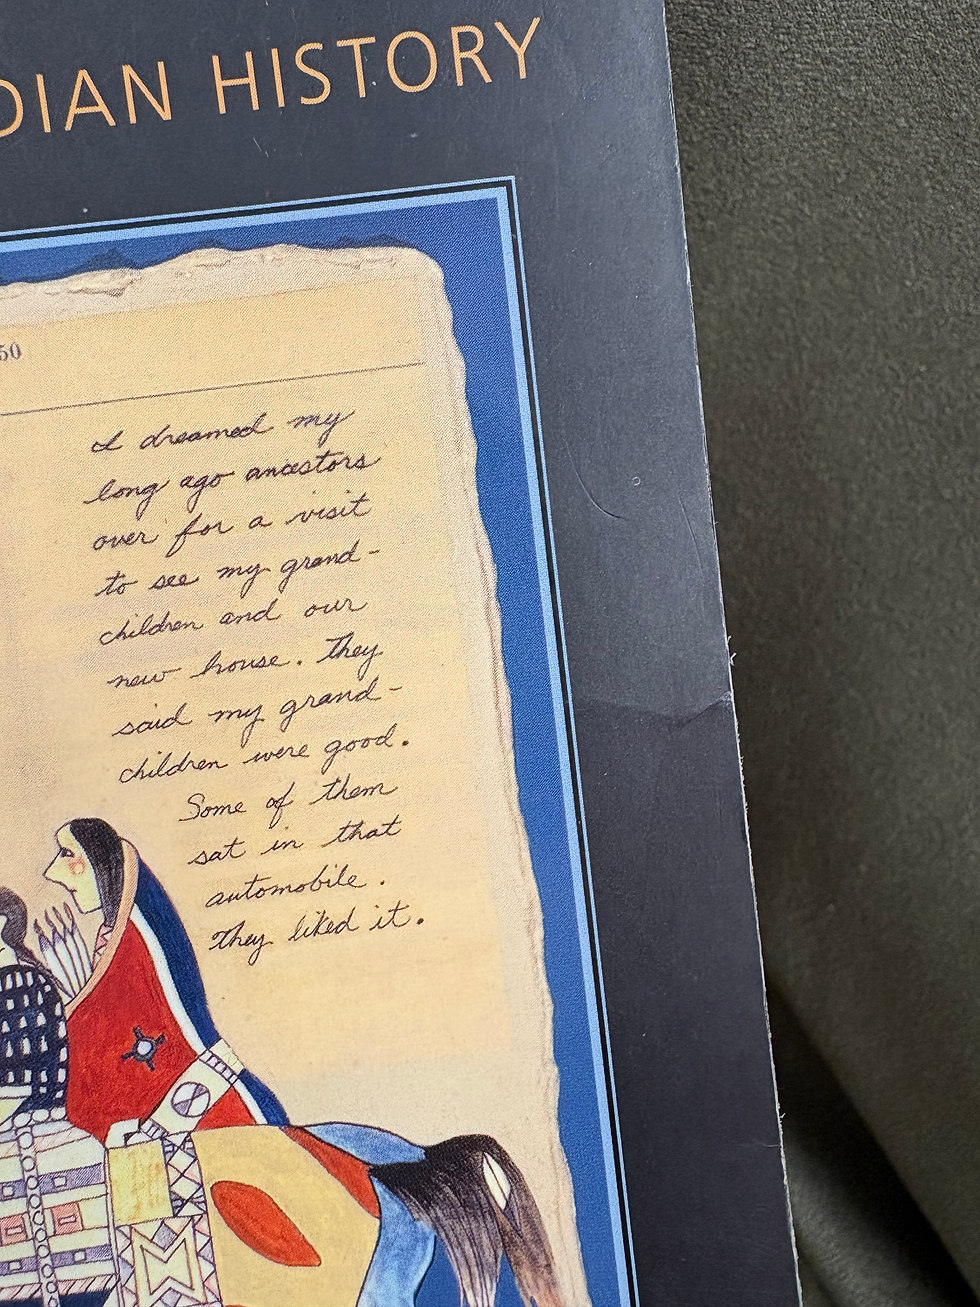 DIAN HISTORY
50
I dreamed my
long ago ancestors
over for a visit
to see my grand-
children and our
new house. They
said my grand-
children were good.
Some of them
sat in that
automobile.
They liked it.